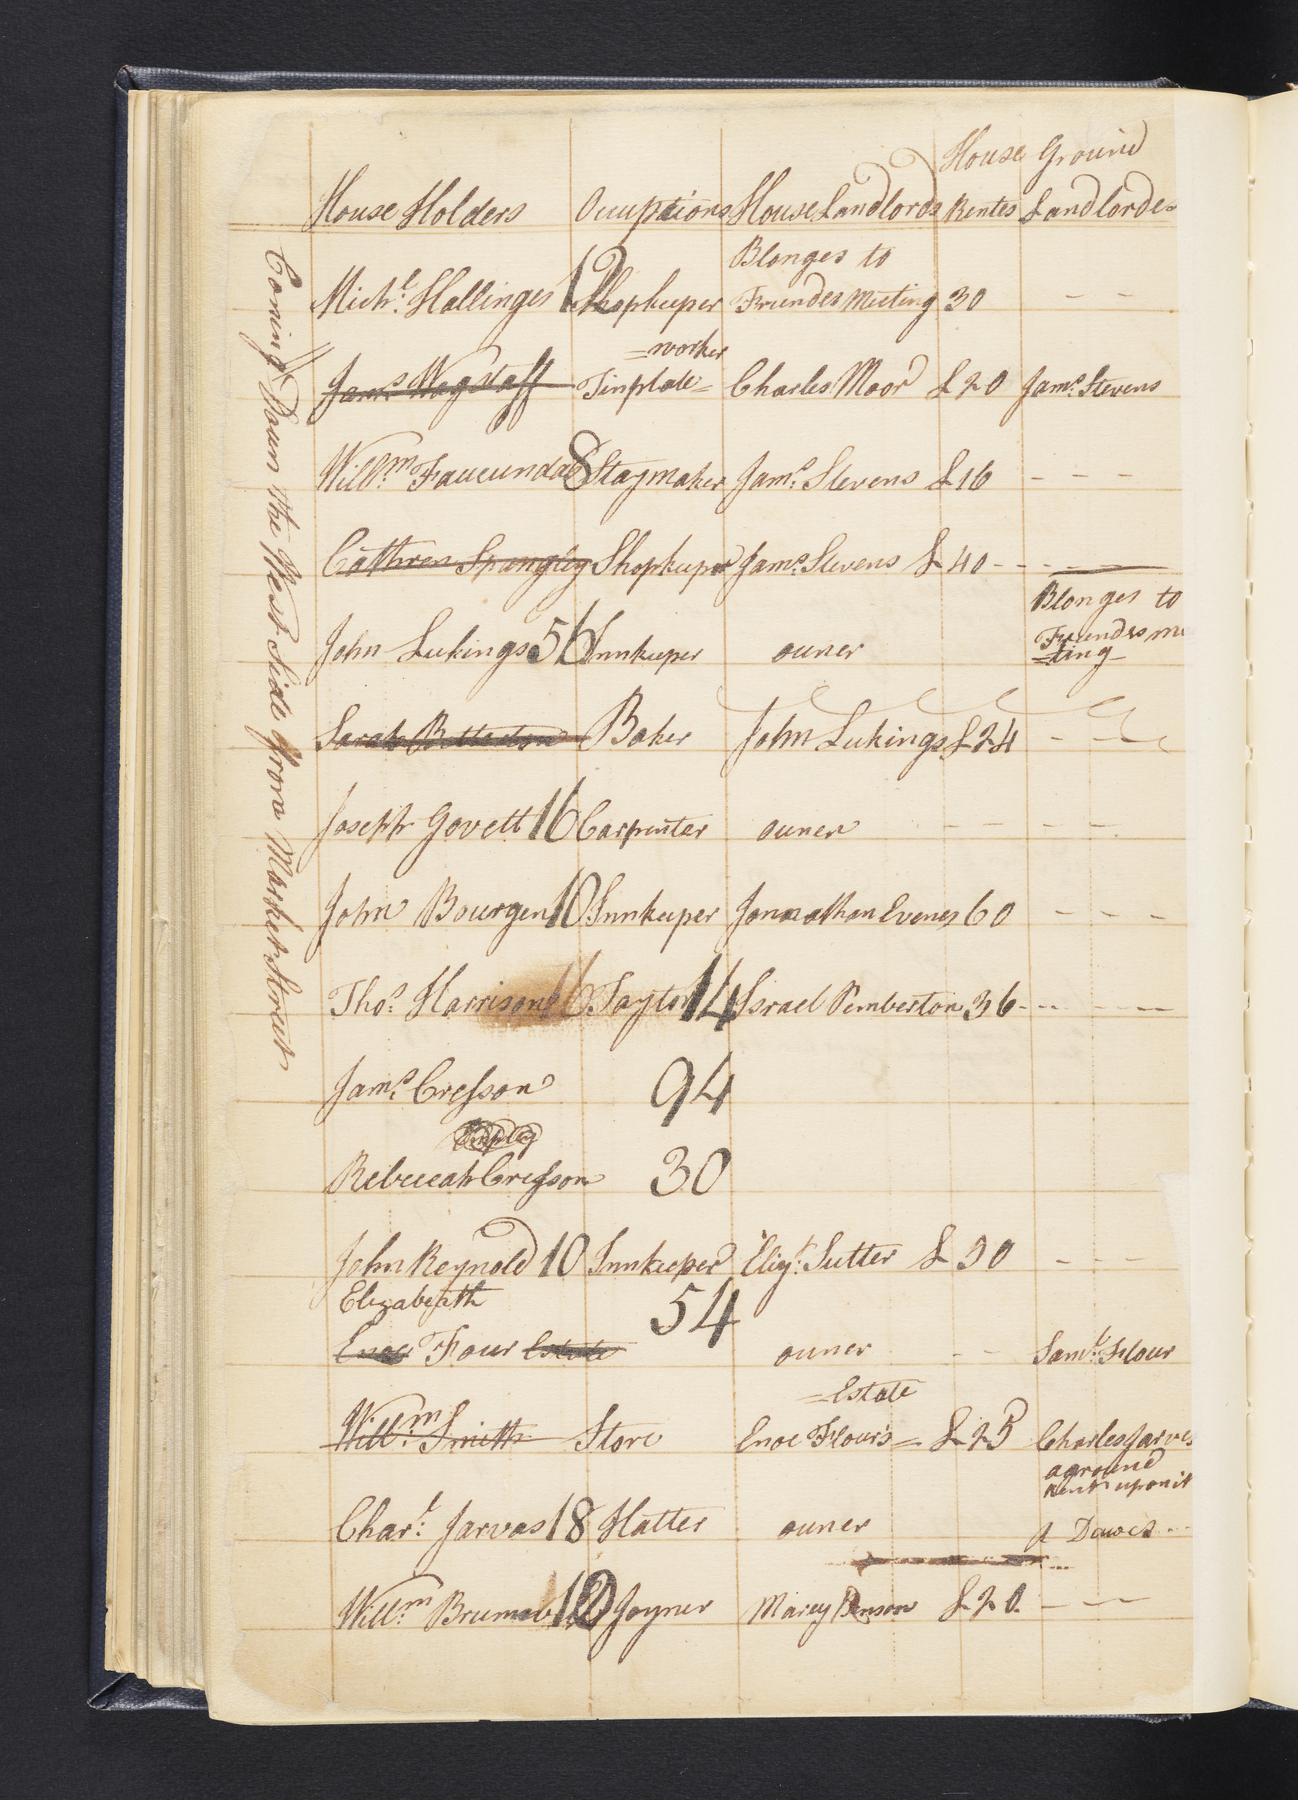 House Ground
House Holders Ocuptions House Landlords Rentes Landlordes
Blonges to
Mich:l Hallinges 12 Shopkeeper Friendes Meeting 30 - -
=worker
Jam:s Wagstaff Tinplate= Charles Moor £20 Jam:s Stevens
Will:m Faucunda 8 Staymaker Jam:s Stevens £16 - - -
Cathren Spangley Shopkeeper Jam:s Stevens £40 - - -
Blonges to
John Lukings 56 Innkeeper owner Friendes me
=ting
Sarah Baker John Lukings £24 - -
Joseph Govett 16 Carpenter owner - - - -
John Bourgen 10 Innkeeper Jonnathan Evenes 60 - - -
Tho:s Harrison 16 Taylor 14 Israel Pemberton 36 - - - -
Jam:s Cresson 94
Rebeccah Cresson 30
John Reynold 10 Innkeeper Eliz: Sutter £30 - - -
Elizabeath 54
Enoc Flour Estate owner - - Sam:l Flour
=Estate
Will:m Smith Store Enoc Flour's= £25 Charles Jarves
a ground
rent upon it
Char:l Jarvas 18 Hatter owner a Dawes - -
Will:m 12 Joyner Marey Benson £20 - - -
Coming Doun the West Side from Market Street